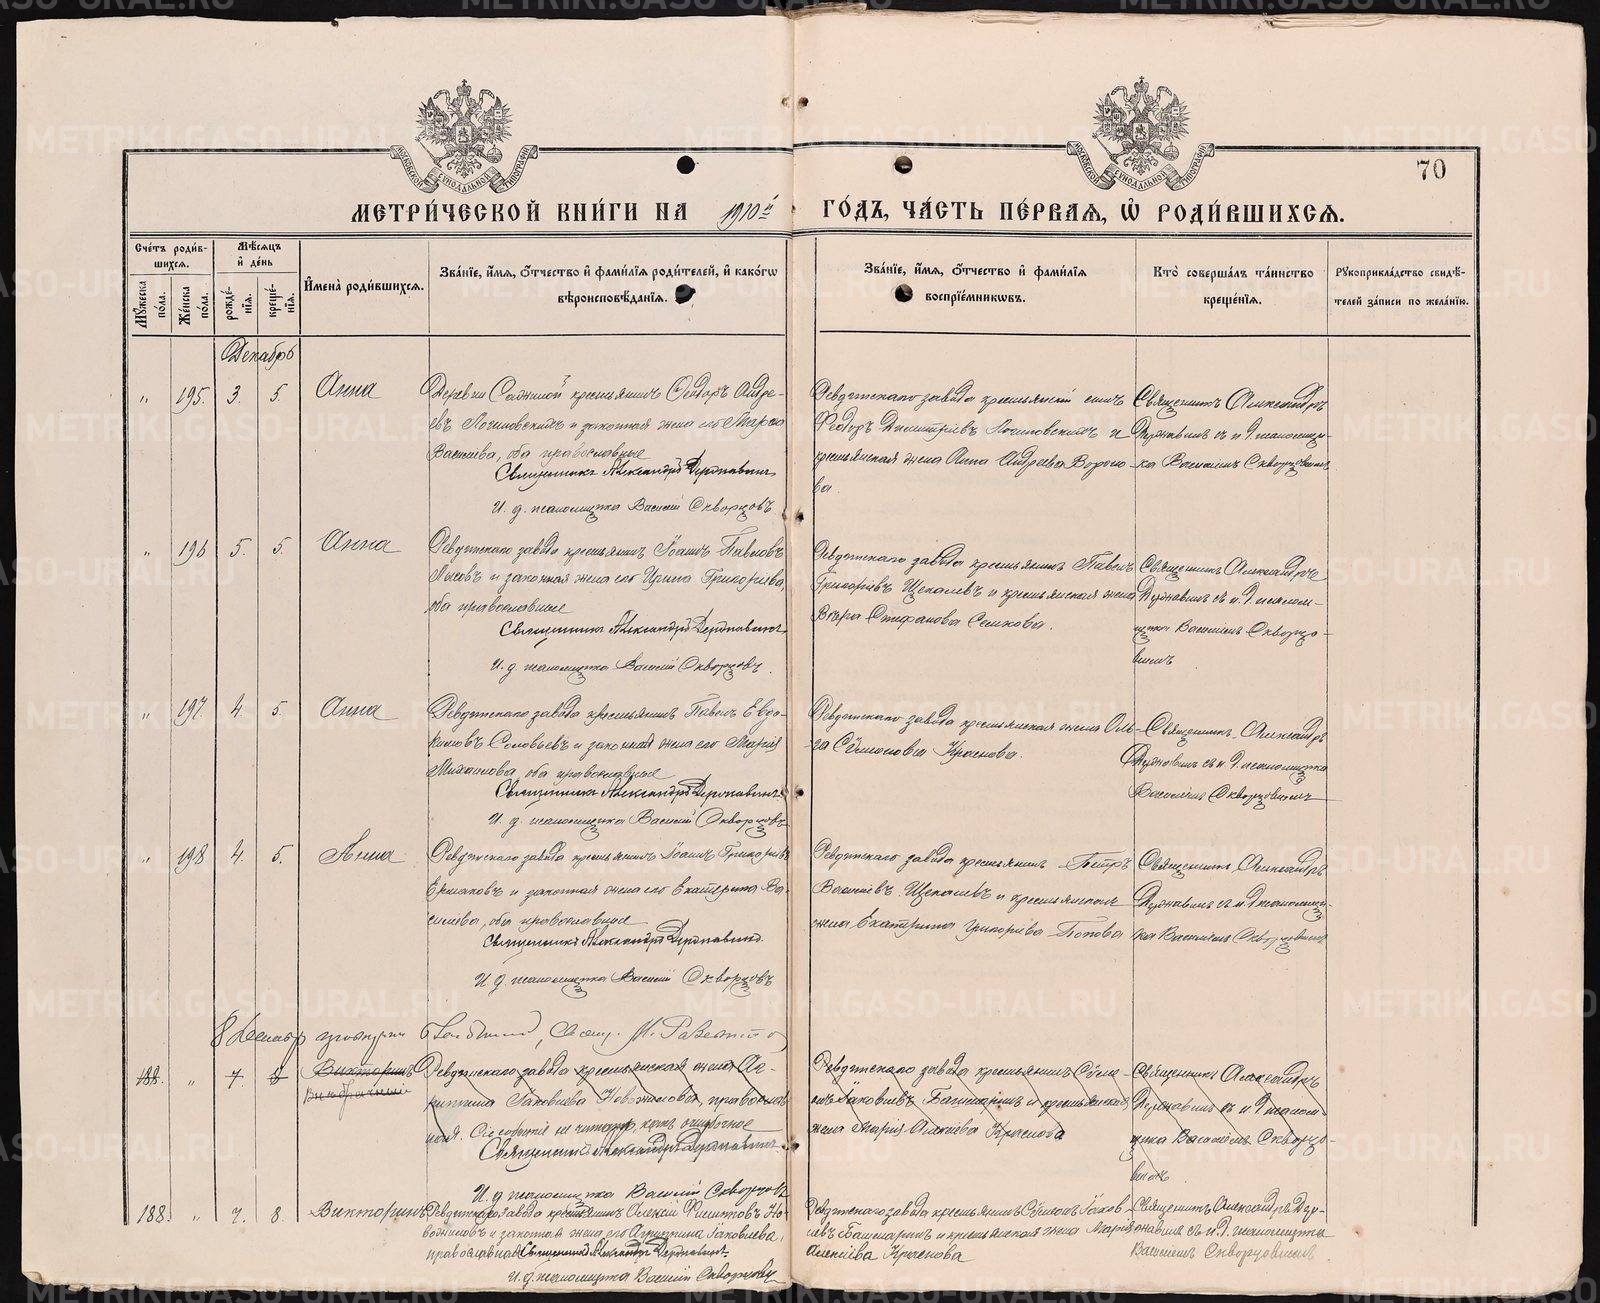 70
МЕТРИ́ЧЕСКОЙ КНИ́ГИ НА 1910й ГО́ДЪ, ЧА́СТЬ ПЕ́РВАЯ, Ѡ РОДИ́ВШИХСЯ.
Сче́тъ роди́вшихся.
Мѣ́сяцъ и де́нь
Имена̀ роди́вшихся.
Зва́нїе, и́мя, о́тчество и фами́лїя роди́телей, и како́гѡ вѣроисповѣ́данїя.
Зва́нїе, и́мя, о́тчество и фами́лїя воспрїе́мникѡвъ.
Кто̀ соверша́лъ та́инство креще́нїя.
Рукоприкла́дство свидѣ́телей за́писи по жела́нїю.
Му́жеска по́ла.
Же́нска по́ла.
рожде́нїя.
креще́нїя.
Декабрь
" 195. 3. 5. Анна
Деревни крестьянинъ Ѳеодоръ Андре-
евъ Логиновскихъ и законная жена его Марѳа
Васильева, оба православные
Священникъ Александръ Державинъ
И. д. псаломщика Василій Скворцовъ
Ревдинскаго завода крестьянскій сынъ
Ѳеодоръ Димитріевъ Логиновскихъ и
крестьянская жена Анна Андреева Вороно-
ва.
Священникъ Александръ
Державинъ съ и. д. псаломщи-
ка Василіемъ Скворцовымъ
" 196 5. 5. Анна
Ревдинскаго завода крестьянинъ Іоаннъ Павловъ
Лысовъ и законная жена его Ирина Григорьева,
оба православные
Священникъ Александръ Державинъ
И. д. псаломщика Василій Скворцовъ.
Ревдинскаго завода крестьянинъ Павелъ
Григорьевъ Щекалевъ и крестьянская жена
Вѣра Стефанова
Священникъ Александръ
Державинъ съ и. д. псалом-
щика Василіемъ Скворцо-
вымъ
" 197. 4. 5. Анна
Ревдинскаго завода крестьянинъ Павелъ Евдо-
кимовъ Соловьевъ и законная жена его Марія
Михаилова, оба православные
Священникъ Александръ Державинъ
И. д. псаломщика Василій Скворцовъ
Ревдинскаго завода крестьянская жена Оль-
га Сѵмеонова Краснова.
Священникъ Александръ
Державинъ съ и. д. псаломщика
Василіемъ Скворцовымъ
" 198 4. 5. Анна
Ревдинскаго завода крестьянинъ Іоаннъ Григорьевъ
Ермаковъ и законная жена его Екатерина Ва-
сильева, оба православные
Священникъ Александръ Державинъ.
И. д. псаломщика Василій Скворцовъ
Ревдинскаго завода крестьянинъ Петръ
Васильевъ Щекалевъ и крестьянская
жена Екатерина Григорьева Попова
Священникъ Александръ
Державинъ съ и. д. псаломщи-
ка Василіемъ Скворцовымъ
8 Декабр
188. " 7. 8 Викторинъ
Внѣбрачный
Ревдинскаго завода крестьянская жена Аг-
риппина Іаковлева православ-
ная. Сіе событіе не читать, какъ ошибочное
Священникъ Александръ Державинъ
И. д. псаломщика Василій Скворцовъ
Ревдинскаго завода крестьянинъ Сѵме-
онъ Іаковлевъ и крестьянская
жена Марія Алексіева Краснова
Священникъ Александръ
Державинъ съ и. д. псалом-
щика Василіемъ Скворцо-
вымъ
188. " 7. 8. Викторинъ
Ревдинскаго завода крестьянинъ Алексій Филиповъ Но-
и законная жена его Агриппина Іаковлева,
православная Священникъ Александръ Державинъ
И. д. псаломщика Василій Скворцовъ
Ревдинскаго завода крестьянинъ Сѵмеонъ Іаков-
левъ и крестьянская жена Марія
Алексіева Краснова
Священникъ Александръ Дер-
жавинъ съ и. д. псаломщика
Василіемъ Скворцовымъ